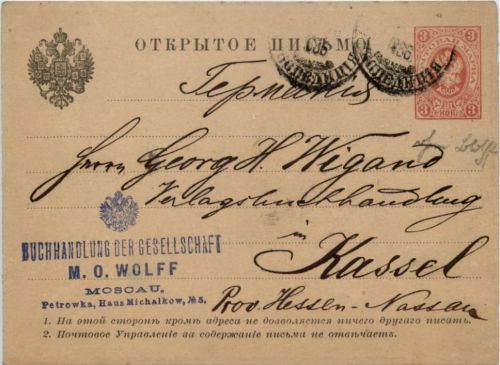 ОТКРЫТОЕ ПИСЬМО.
Германія
Herrn Georg H. Wigand
Verlagsbuchhandlung
in
Kassel
Prov. Hessen-Nassau
BUCHHANDLUNG DER GESELLSCHAFT
M. O. WOLFF
MOSCAU,
Petrowka, Haus Michalkow, № 5.
1. На этой сторонѣ кромѣ адреса не дозволяется ничего другаго писать.
2. Почтовое Управленіе за содержаніе письма не отвѣчаетъ.
3 3
ПОЧТОВАЯ МАРКА
3 КОП. 3